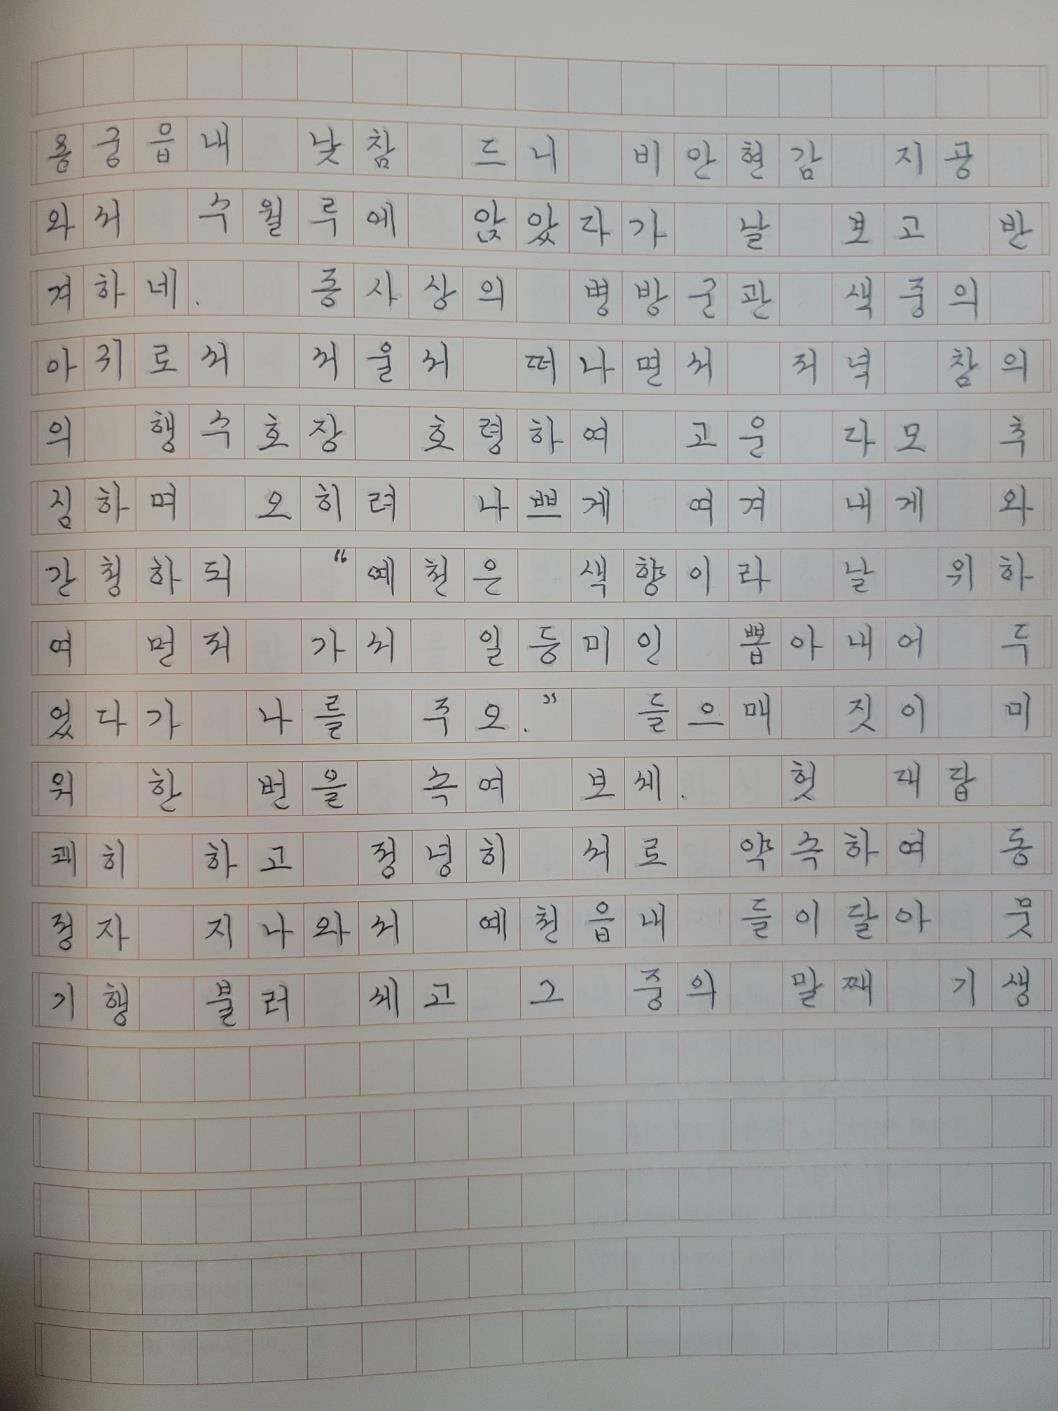 용궁읍내 낮참 드니 비안현감 지공
와서 수월루에 앉았다가 날 보고 반
겨하네. 종사상의 병방군관 색중의
아귀로서 서울서 떠나면서 저녁 참의
의 행수호장 호령하여 고운 다모 추
심하며 오히려 나쁘게 여겨 내게 와
간청하되 “예천은 색향이라 날 위하
여 먼저 가서 일등미인 뽑아내어 두
었다가 나를 주오.” 들으매 짓이 미
워 한 번을 속여 보세. 헛 대답
쾌히 하고 정녕히 서로 약속하여 동
정자 지나와서 예천읍내 들이달아 뭇
기행 불러 세고 그 중의 말째 기생